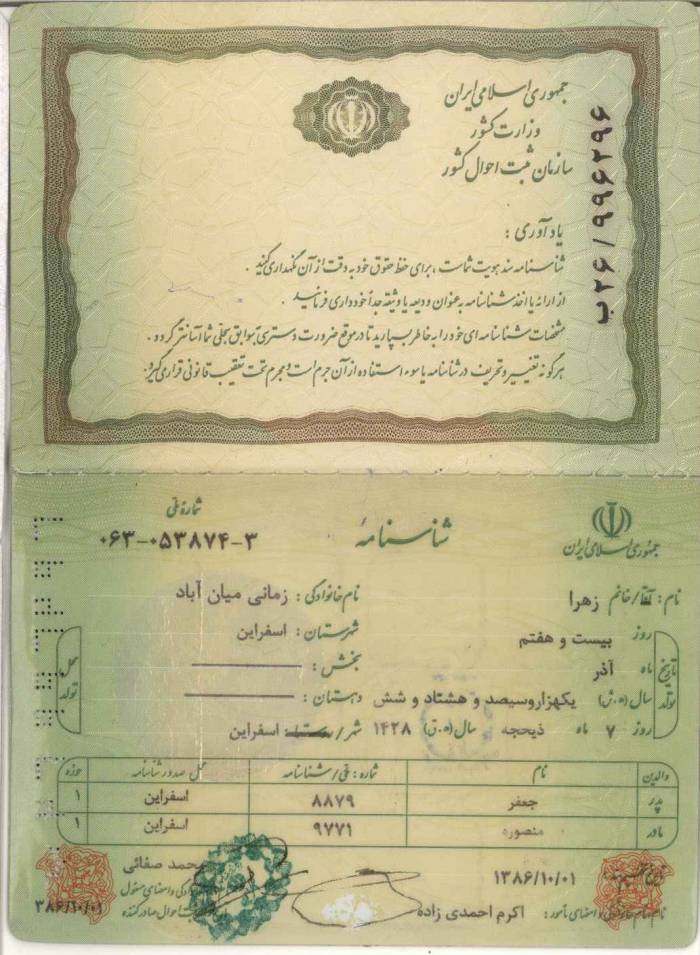 جمهوری اسلامی ایران
وزارت کشور
سازمان ثبت احوال کشور
ب۲۶/۹۹۶۲۹۶
یادآوری :
شناسنامه سند هویت شماست ، برای حفظ حقوق خود به دقت از آن نگهداری کنید .
از ارائه یا اخذ شناسنامه به عنوان ودیعه یا وثیقه جداً خودداری فرمائید .
مشخصات شناسنامه ای خود را به خاطر بسپارید تا در موقع ضرورت دسترسی به سوابق سجلی شما آسانتر گردد .
هرگونه تغییر و تحریف در شناسنامه یا سوء استفاده از آن جرم است و مجرم تحت تعقیب قانونی قرار می‌گیرد .
جمهوری اسلامی ایران
شناسنامه
شماره ملی
۰۶۳-۰۵۳۸۷۴-۳
نام : آقا/خانم زهرا نام خانوادگی : زمانی میان آباد
تاریخ تولد
روز بیست و هفتم شهرستان : اسفراین
ماه آذر بخش :
سال (ه.ش) یکهزاروسیصد و هشتاد و شش دهستان :
روز ۷ ماه ذیحجه سال (ه.ق) ۱۴۲۸ شهر / اسفراین
محل تولد
والدین نام شماره : ملی/شناسنامه محل صدور شناسنامه حوزه
پدر جعفر ۸۸۷۹ اسفراین ۱
مادر منصوره ۹۷۷۱ اسفراین ۱
تاریخ ۱۳۸۶/۱۰/۰۱
و امضای مأمور : اکرم احمدی زاده
محمد صفائی
و امضای مسئول
احوال صادرکننده
۳۸۶/۱۰/۰۱